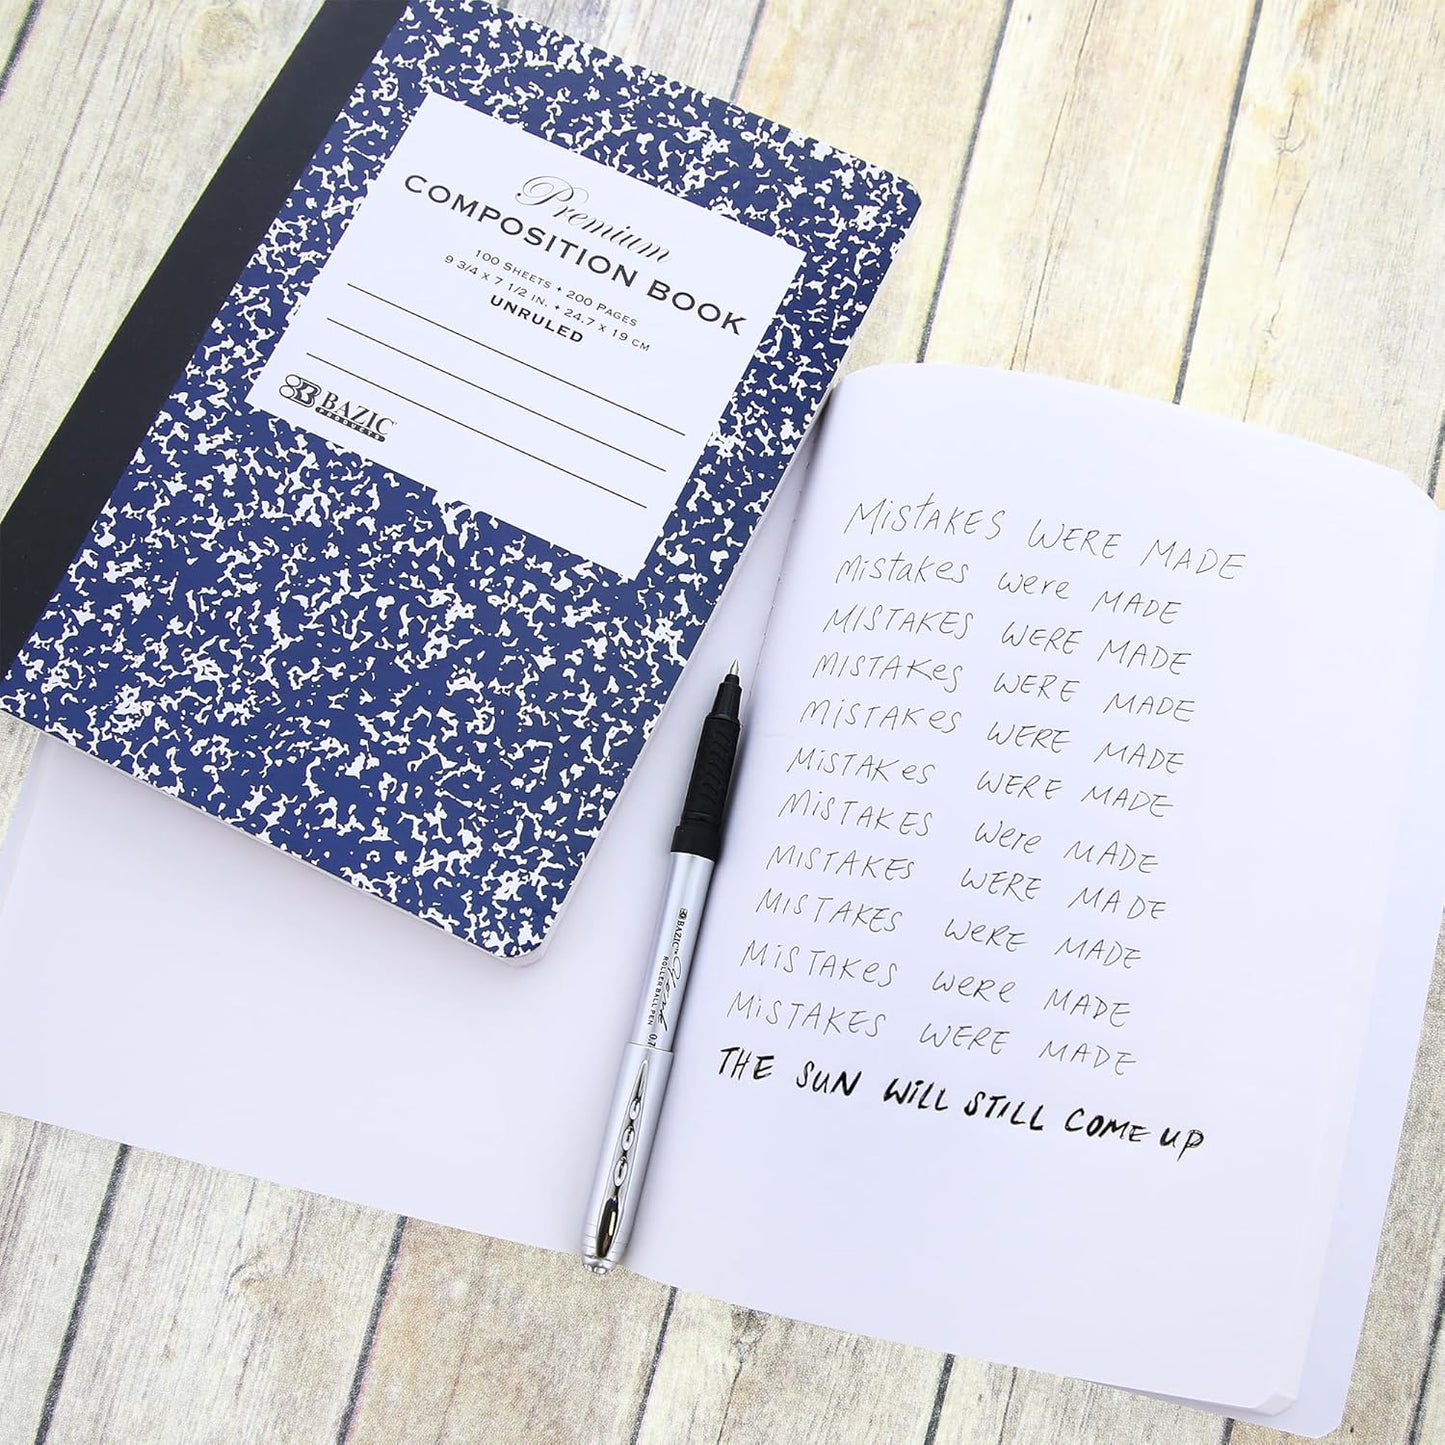 Premium
COMPOSITION BOOK
100 SHEETS • 200 PAGES
9 3/4 X 7 1/2 IN. • 24.7 X 19 CM
UNRULED
B BAZIC
PRODUCTS
MiSTAKES WERE MADE
MiStakes were MADE
MISTAKES WERE MADE
MISTAKeS WERE MADE
MiSTAKeS WERE MADE
MiSTAKeS WERE MADE
MiSTAKES were MADE
MISTAKES WERE MADE
MISTAKES WeRE MADE
MiSTAKeS WeRe MADE
MiSTAKES WERE MADE
THE SUN WiLL STiLL COME UP
BAZIC™
ROLLERBALL PEN 0.7